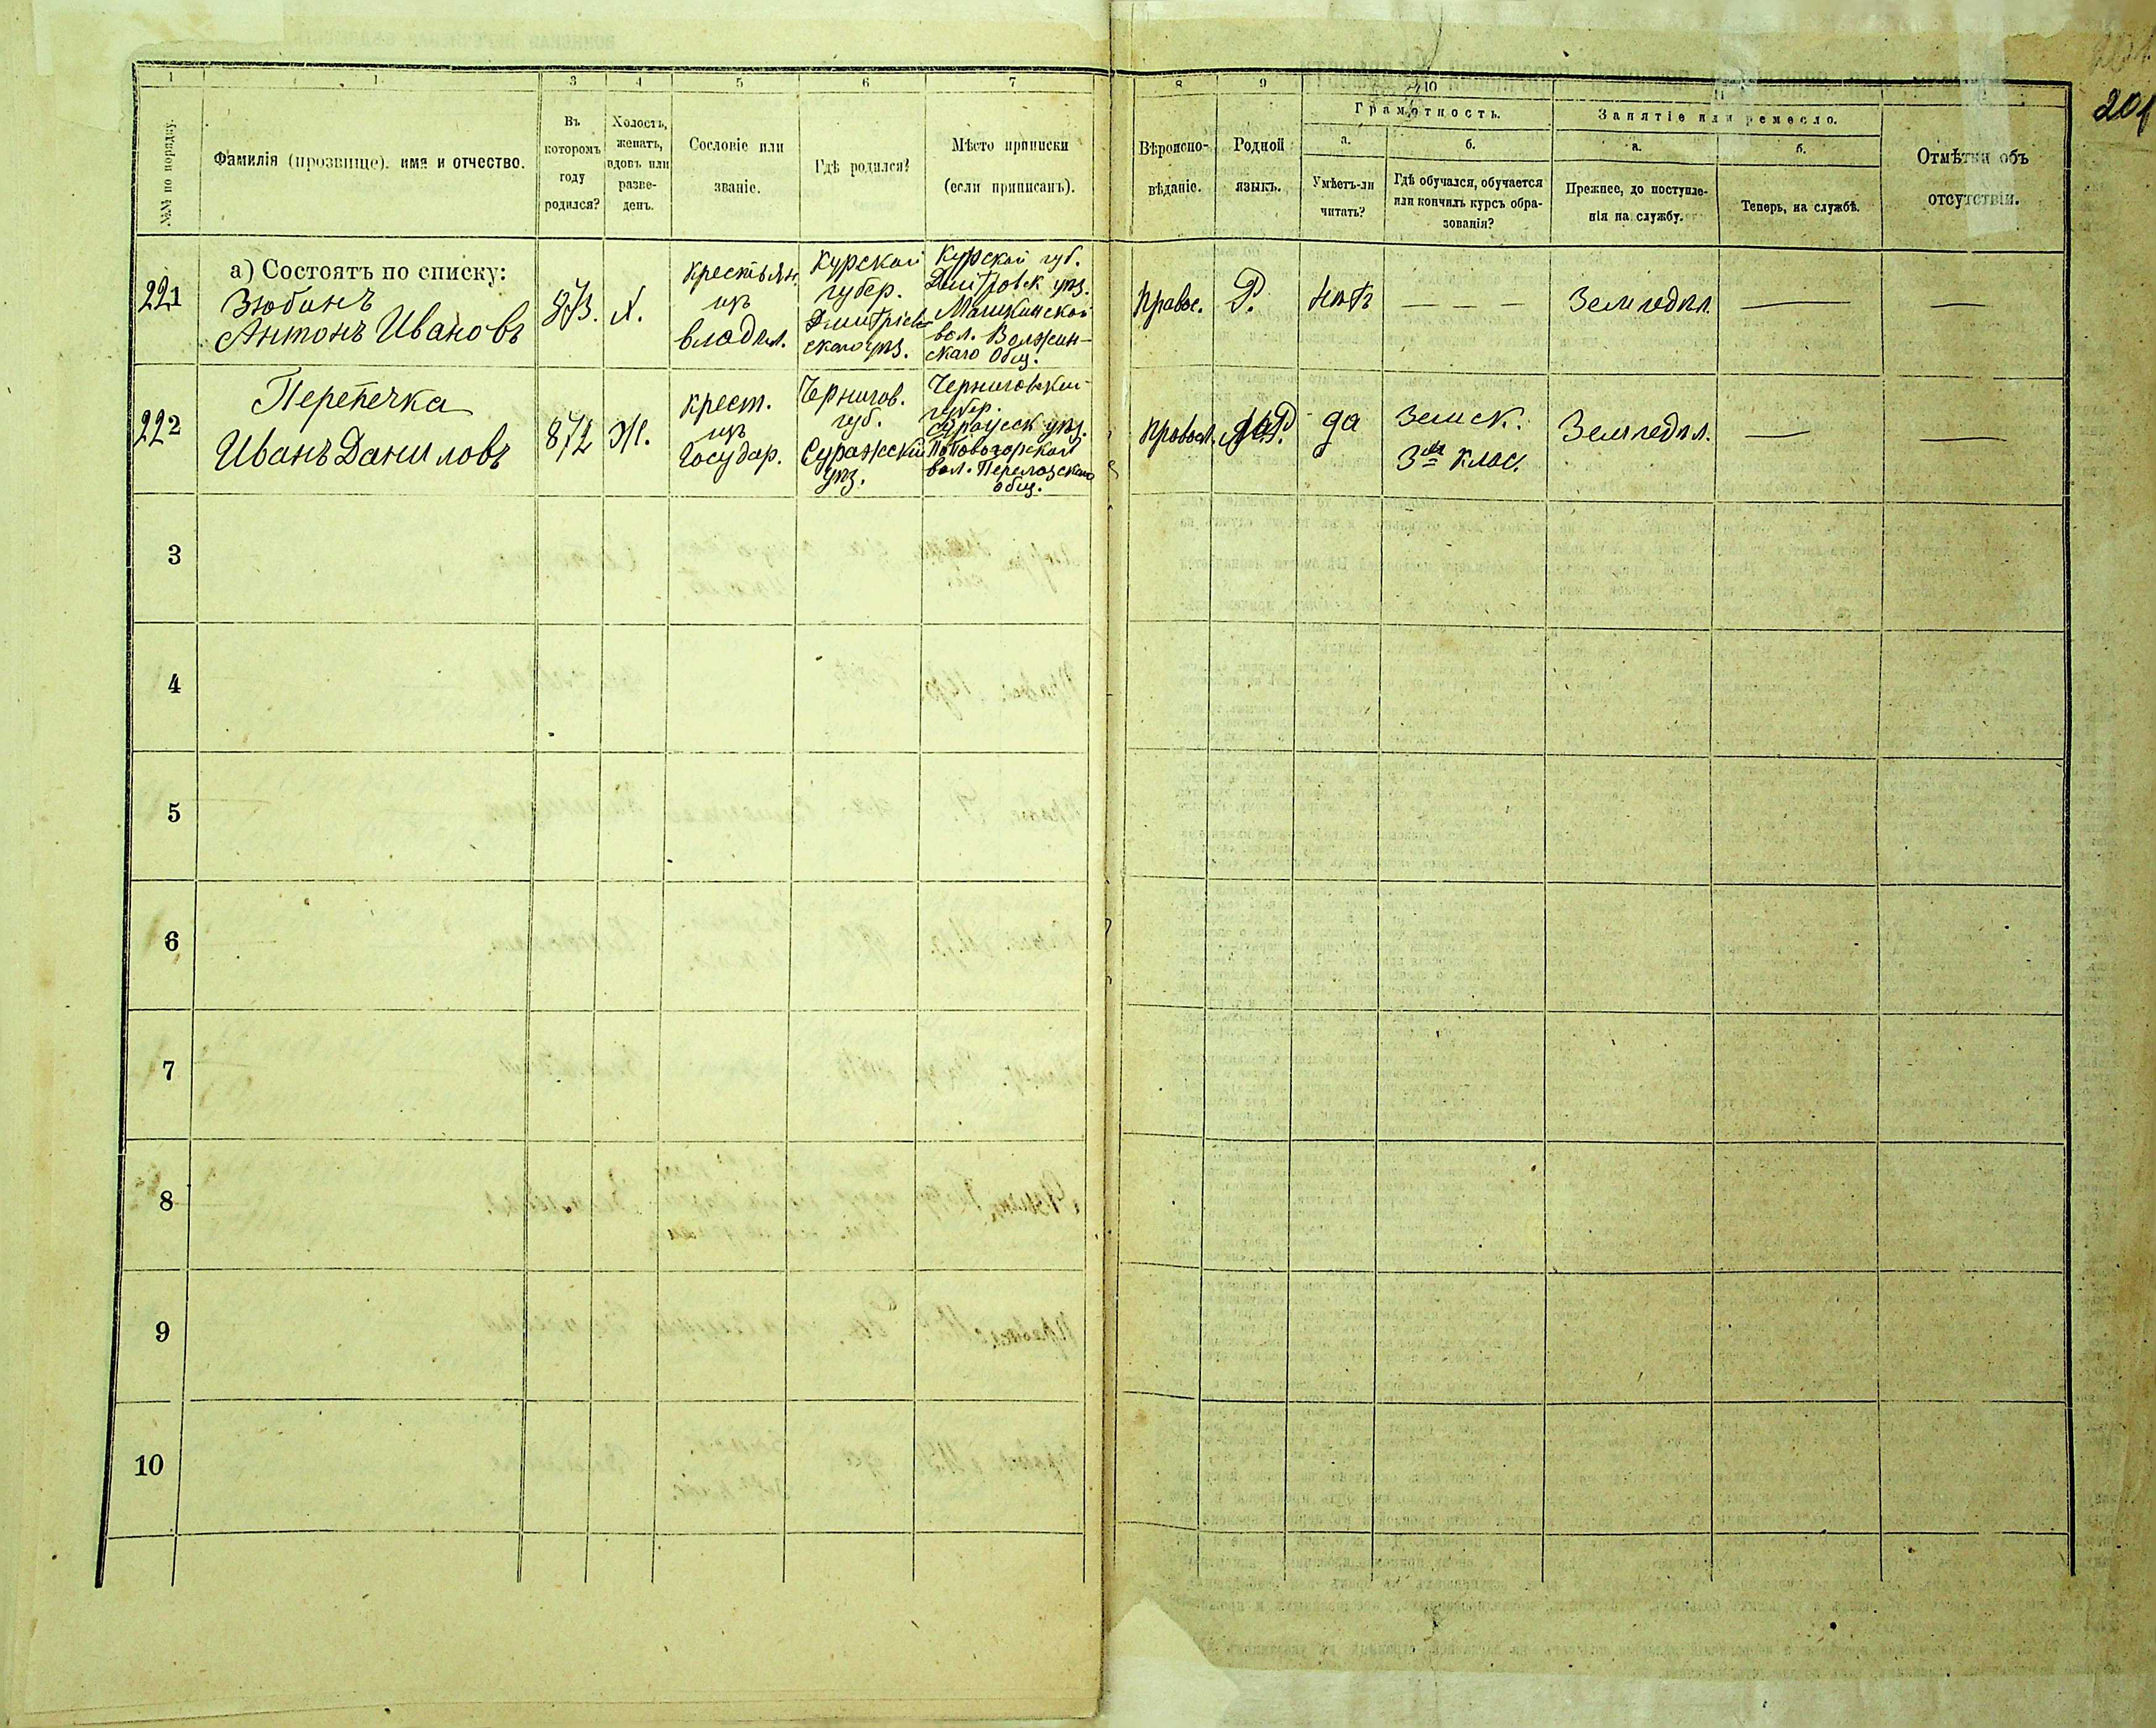 201
1 1 3 4 5 6 7 8 9 10 11
№№ по порядку.
Фамилія (прозвище), имя и отчество.
Въ
которомъ
году
родился?
Холостъ,
женатъ,
вдовъ или
разве-
денъ.
Сословіе или
званіе.
Гдѣ родился?
Мѣсто приписки
(если приписанъ).
Вѣроиспо-
вѣданіе.
Родной
языкъ.
Грамотность.
а.
Умѣетъ-ли
читать?
б.
Гдѣ обучался, обучается
или кончилъ курсъ обра-
зованія?
Занятіе или ремесло.
а.
Прежнее, до поступле-
нія на службу.
б.
Теперь, на службѣ.
Отмѣтки объ
отсутствіи.
221
а) Состоятъ по списку:
Зюбинъ
Антонъ Ивановъ
873.
Х.
Крестьян.
изъ
владѣл.
Курской
губер.
Дмитріев-
скаго уѣз.
Курской губ.
уѣз.
вол.
скаго Общ.
Правос.
Р.
нѣтъ
— — —
Земледѣл.
—
—
222
Перепечка
Иванъ Даниловъ
872
Ж.
крест.
изъ
Государ.
Чернигов.
губ.
Суражскій
уѣз.
Черниговской
губер.
уѣз.
вол.
общ.
Правосл.
да
Земск.
3 клас.
Земледѣл.
—
—
3
4
5
6
7
8
9
10